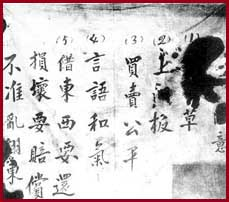 意
(1)
草
(2) 上
板
(3) 買賣公平
(4) 言語和氣
(5) 借東西要還
損壞要賠償
不准亂翻東